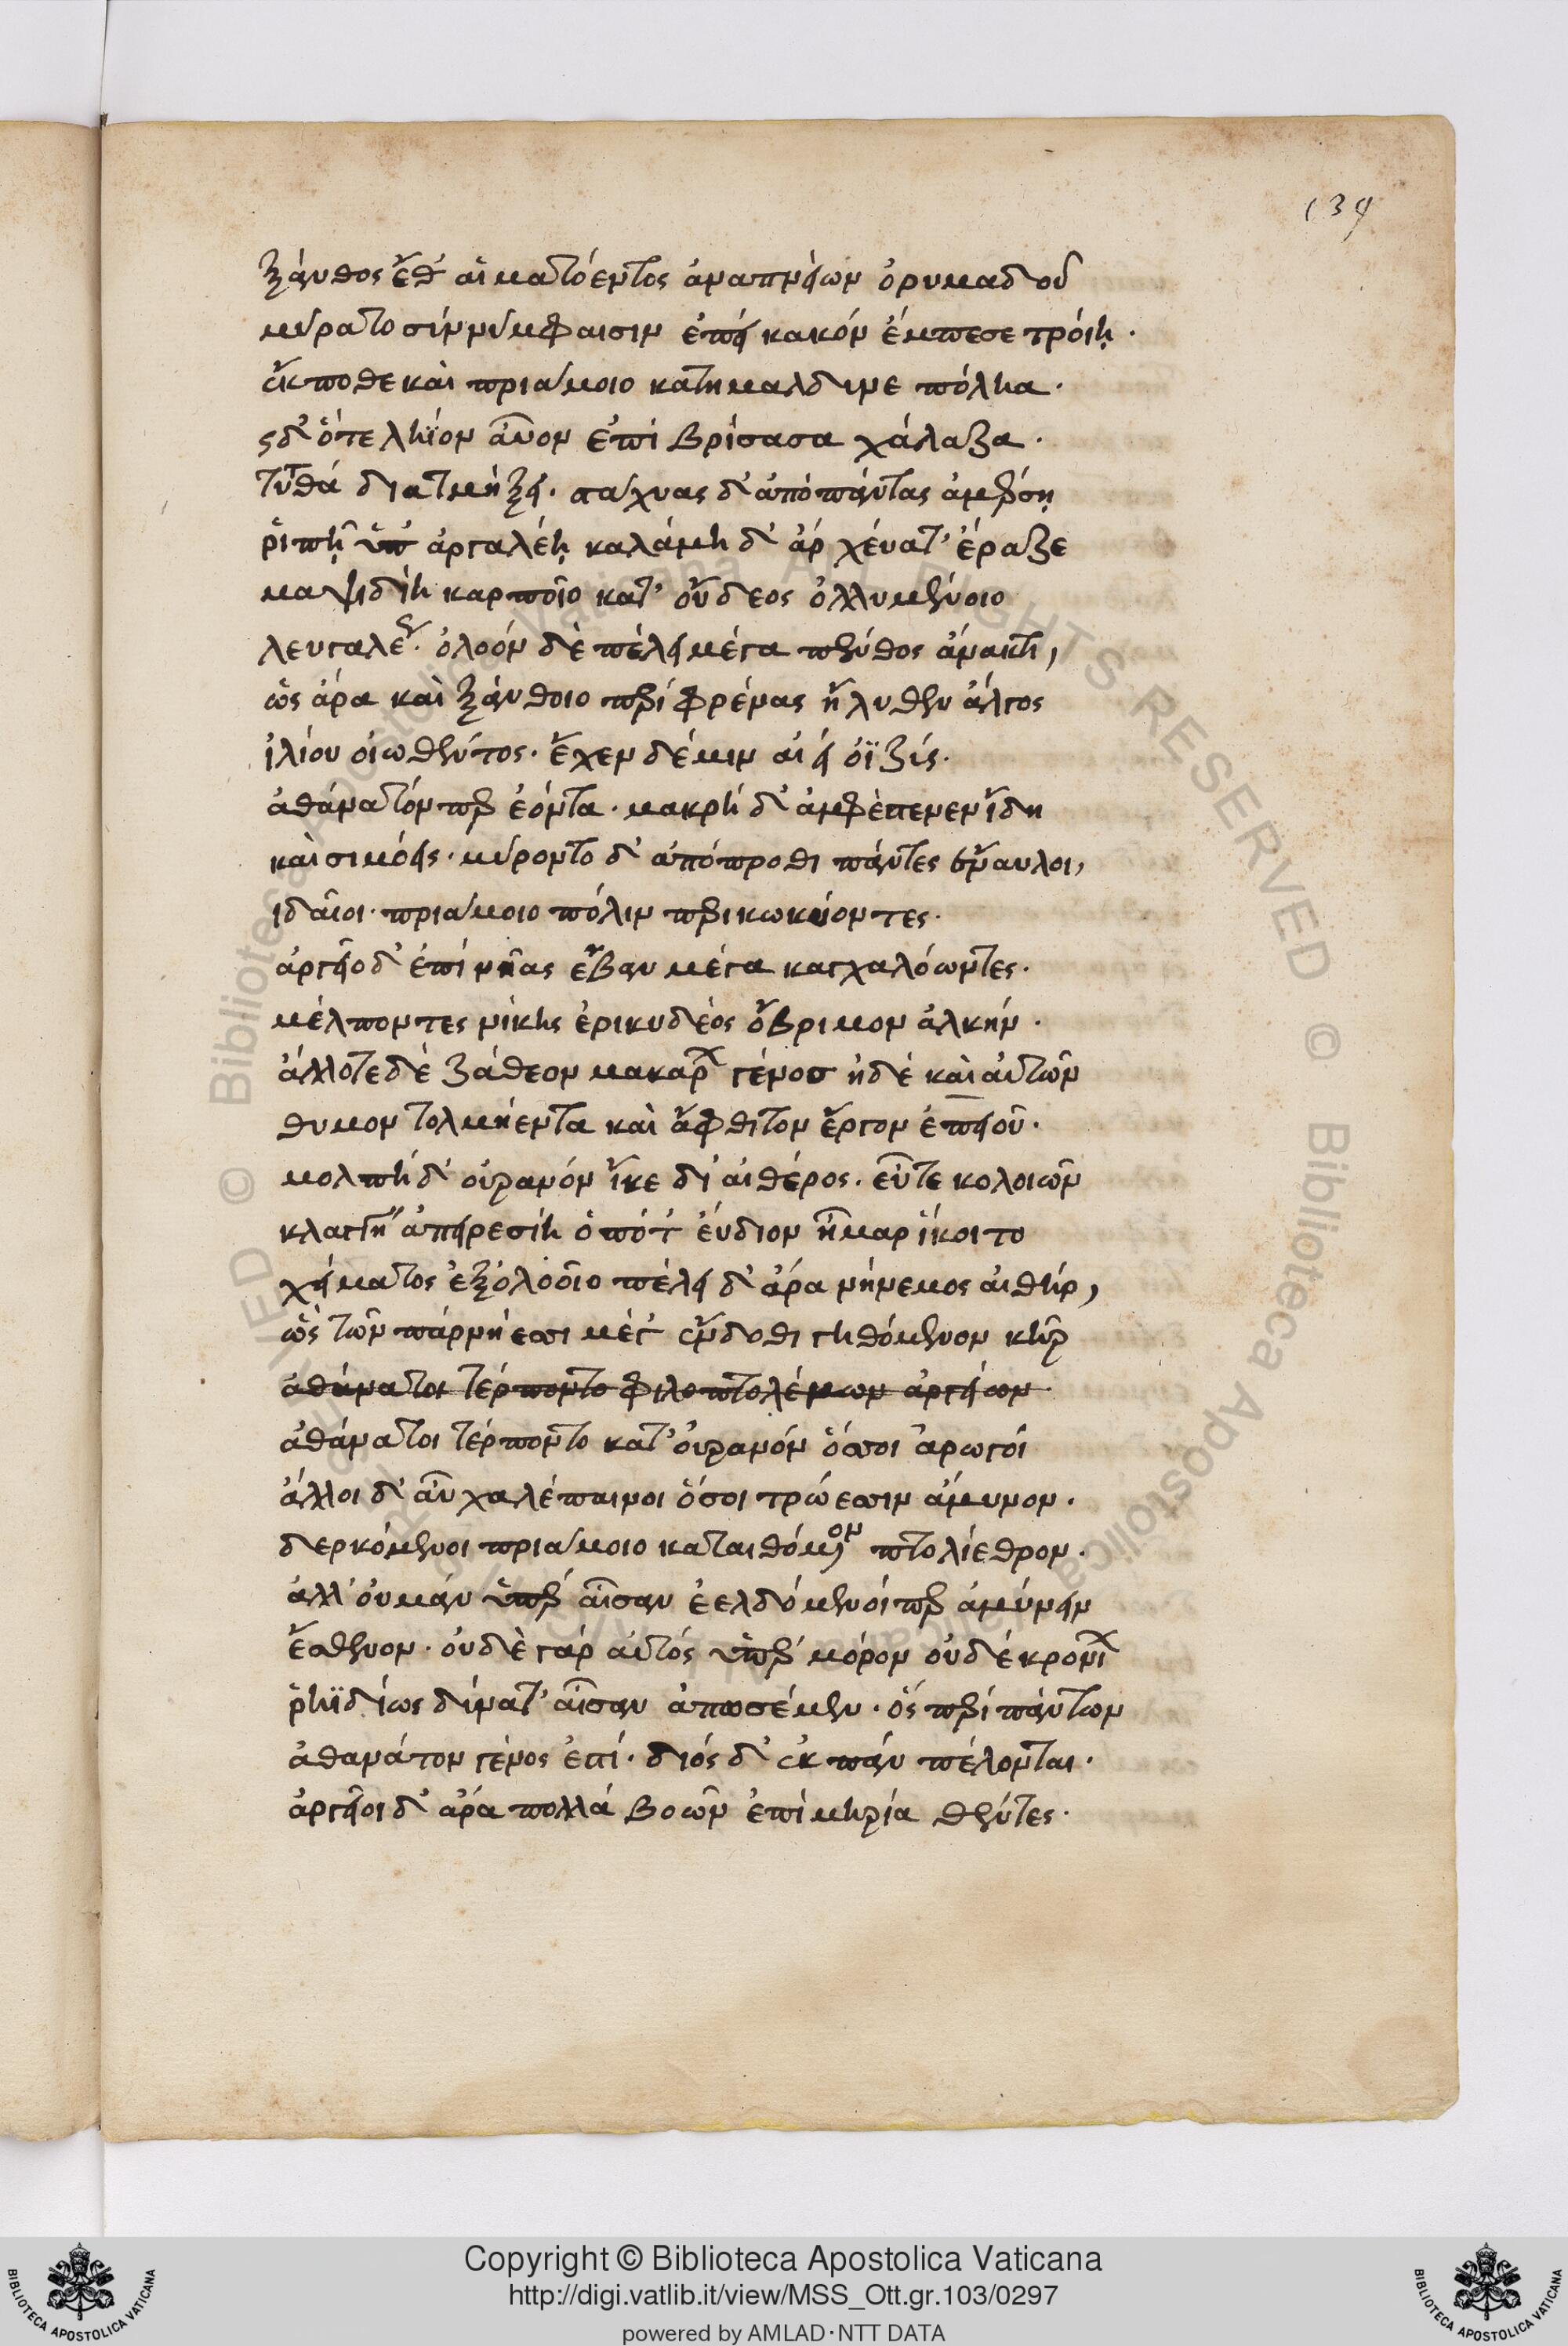 139
ξάνθος ἔθ' αἱματόεντος ἀναπνείων ὀρυμαδοῦ
μύρατο σὺν νύμφαισιν ἐπεὶ κακὸν ἔμπεσε τρόιῃ.
ἔκποθε καὶ πριάμοιο κατημάλδυνε πόληα.
ὡς δ' ὁτε λήϊον αὖον ἐπὶ βρίσασα χάλαζα.
τυτθὰ διατμήξει. στάχυας δ' ἀπὸ πάντας ἀμέρσῃ
ῥιπῇ ὑπ' ἀργαλέῃ καλάμη δ' ἀρ χέυατ' ἔραζε
μαψιδίη καρποῖο κατ' οὖδεος ὀλλυμένοιο
λευγαλέως. ὀλοὸν δὲ πέλει μέγα πένθος ἄνακτι,
ὣς ἄρα καὶ ξάνθοιο περὶ φρένας ἤλυθεν ἄλγος
ἰλίου οἰωθέντος. ἔχεν δέ μιν αἰεὶ ὀϊζύς.
ἀθάνατόν περ ἐόντα. μακρὴ δ' ἀμφέπενεν ἴδη
καὶ σιμόεις. μύροντο δ' ἀπόπροθι πάντες ἔναυλοι,
ἰδαῖοι. πριάμοιο πόλιν περικωκύοντες.
ἀργεῖο δ' ἐπὶ νῆας ἔβαν μέγα καγχαλόωντες.
μέλποντες νίκης ἐρικυδέος ὄβριμον ἀλκήν.
ἄλλοτε δὲ ζάθεον μακάρων γένος ἠδὲ καὶ αὐτῶν
θυμον τολμήεντα καὶ ἄφθιτον ἔργον ἐπειοῦ.
μολπὴ δ' οὐρανὸν ἷκε δι' αἰθέρος. εὖτε κολοιῶν
κλαγγὴ ἀπειρεσίη ὁπότ' εὔδιον ἦμαρ ἵκοιτο
χείματος ἐξ ὀλοοῖο πέλει δ' ἄρα νήνεμος αἰθήρ,
ὣς τῶν πάρ νήεσσι μέγ' ἔνδοθι γηθόμενον κῆρ
ἀθάνατοι τέρποντο φιλοπτολέμων ἀργείων.
ἀθάνατοι τέρποντο κατ' οὐρανὸν ὅσσοι ἀρωγοὶ
ἄλλοι δ' αὖ χαλέπαινοι ὅσοι τρώεσσιν ἄμυνον.
δερκόμενοι πριάμοιο καταιθόμενον πτολίεθρον.
ἀλλ' οὐ μὰν ὑπὲρ αἶσαν ἐελδόμενοί περ ἀμύνειν
ἔσθενον. οὐδὲ γὰρ αὐτὸς ὑπὲρ μόρον οὐδὲ κρονίων
ῥηϊδίως δύνατ' αἶσαν ἀπωσέμεν. ὃς περὶ πάντων
ἀθανάτον γένος ἐστί. διὸς δ' ἐκ πάν πέλονται.
ἀργεῖοι δ' ἄρα πολλὰ βοῶν ἐπὶ μηρία θέντες.
Copyright © Biblioteca Apostolica Vaticana
http://digi.vatlib.it/view/MSS_Ott.gr.103/0297
powered by AMLAD·NTT DATA